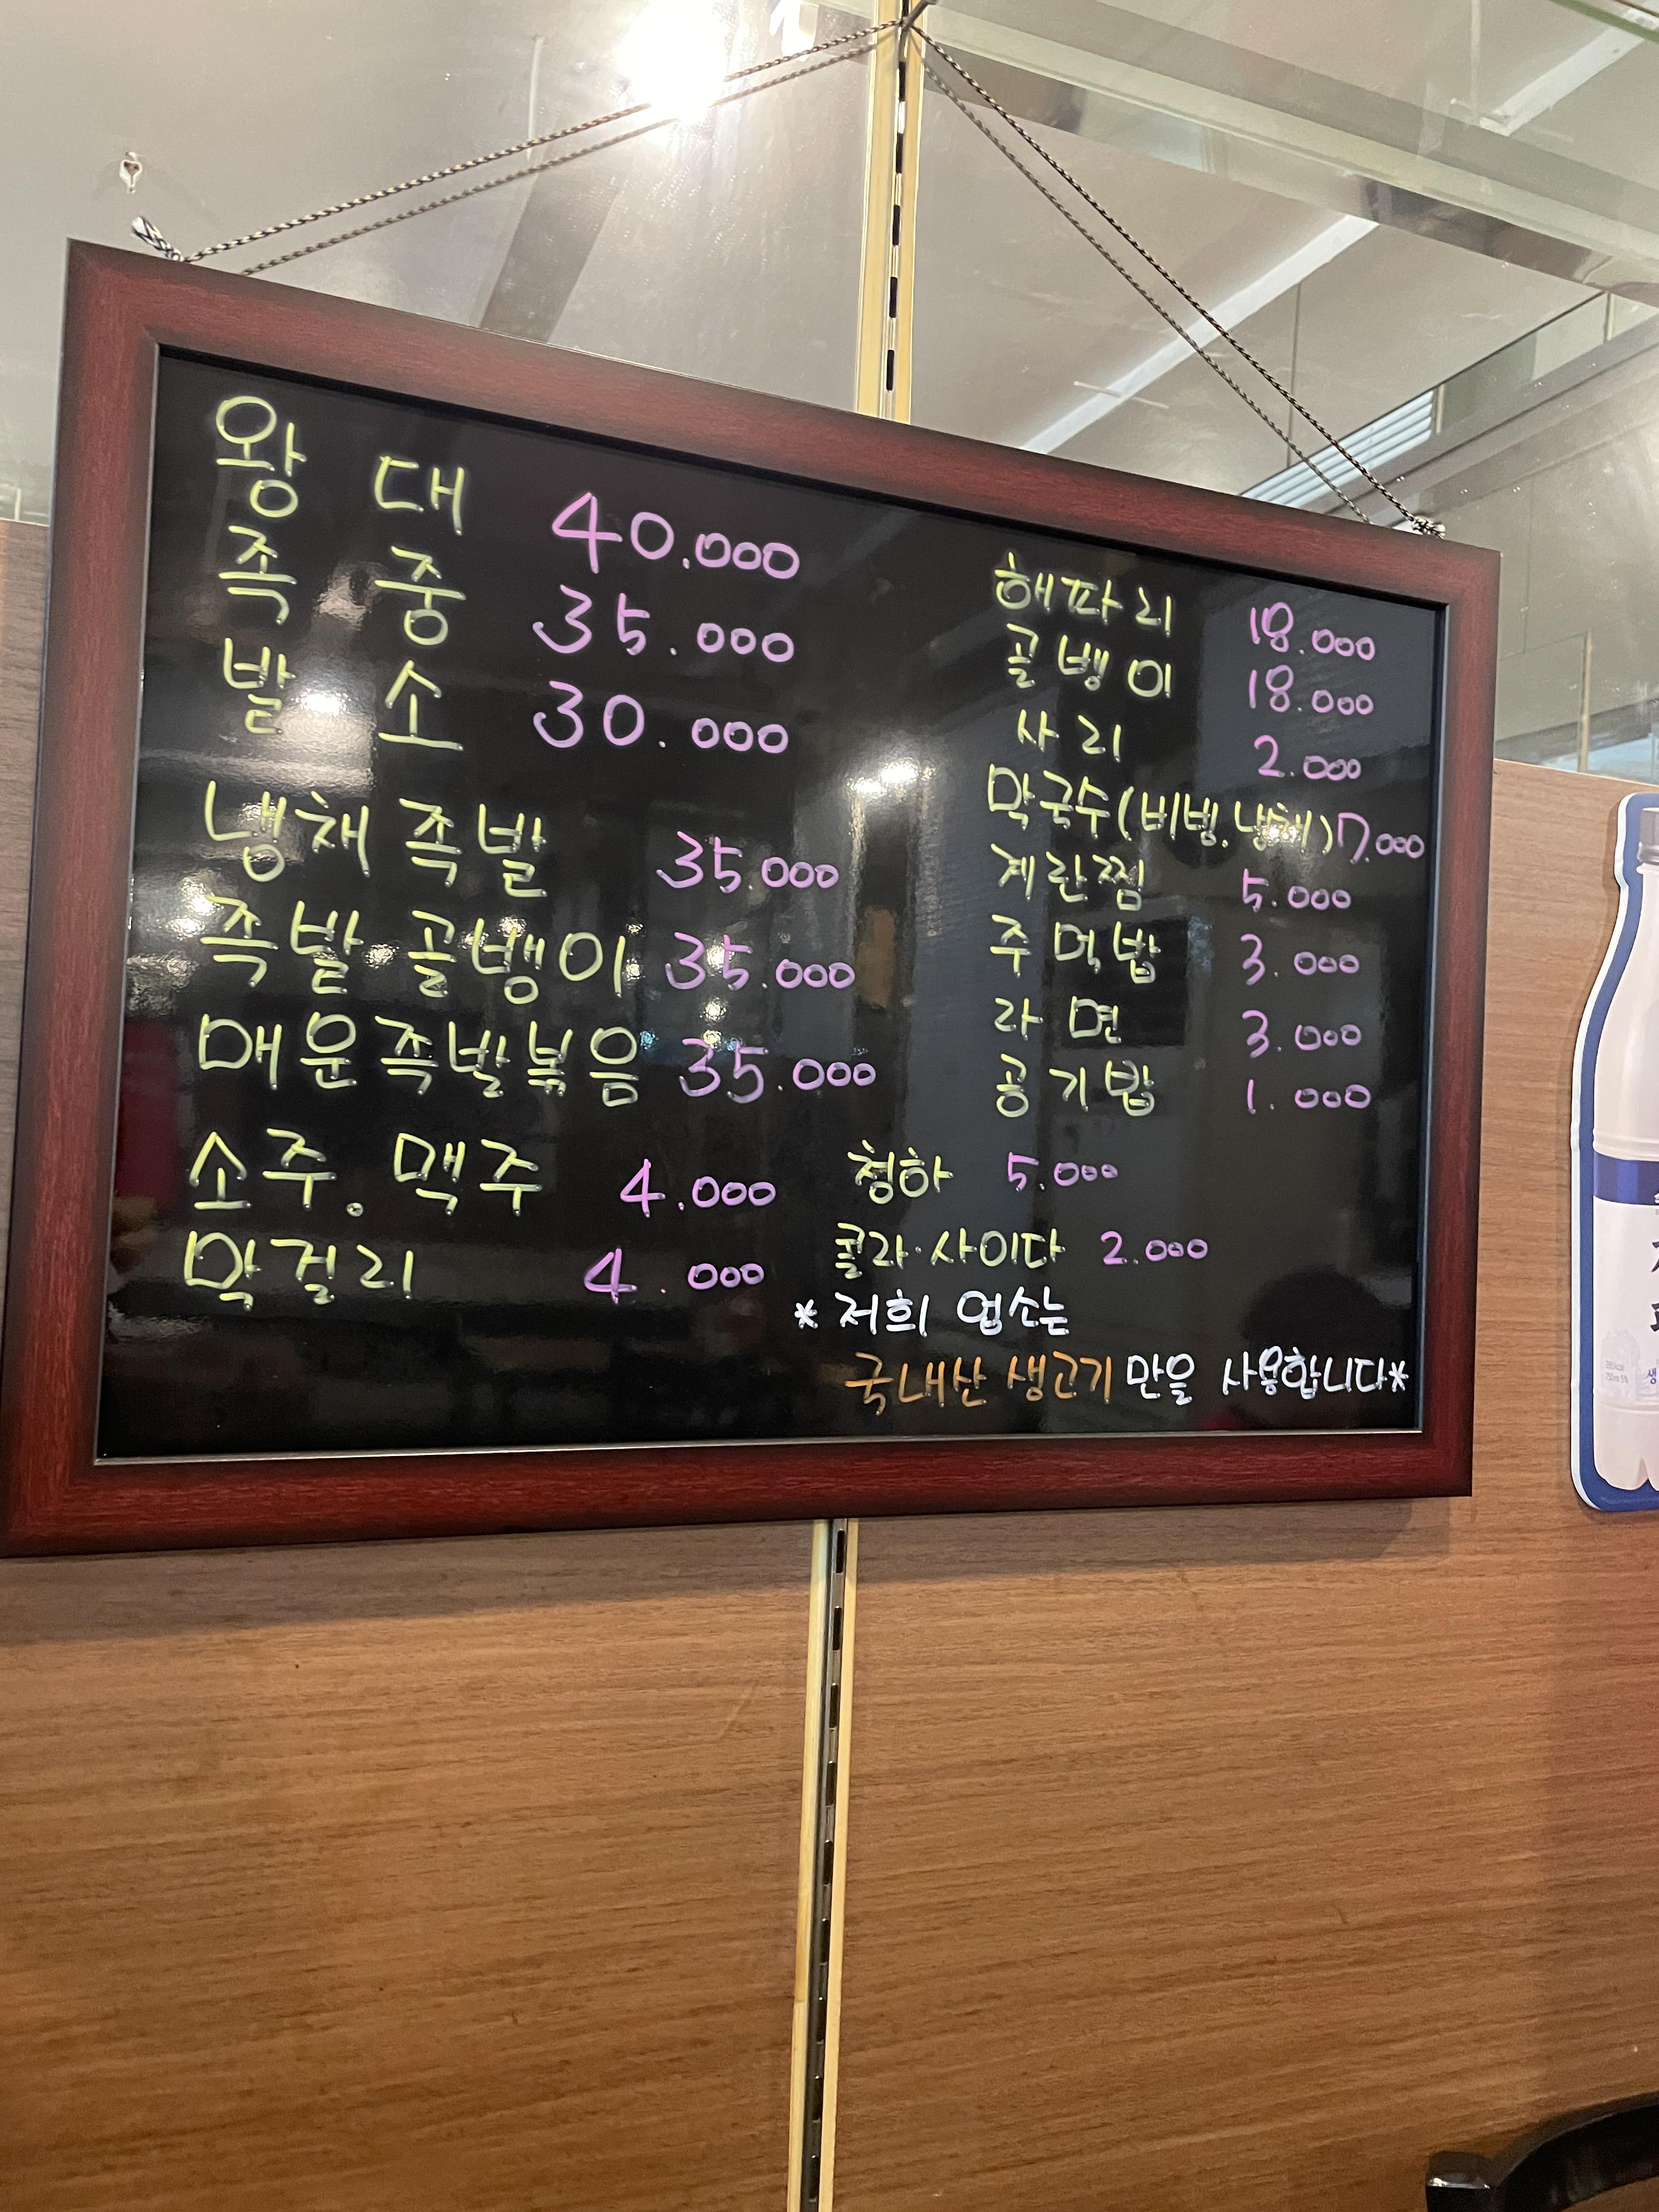 왕 대 40.000
족 중 35.000
발 소 30.000
냉채 족발 35.000
족발 골뱅이 35.000
매운 족발볶음 35.000
소주. 맥주 4.000
막걸리 4.000
해파리 18.000
골뱅이 18.000
사리 2.000
막국수(비빔.냉채)7.000
계란찜 5.000
주먹밥 3.000
라면 3.000
공기밥 1.000
청하 5.000
콜라·사이다 2.000
* 저희 업소는
국내산 생고기만을 사용합니다*
생